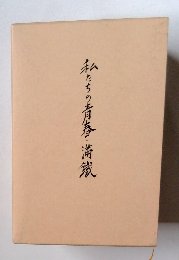 私たちの青春・満鐵